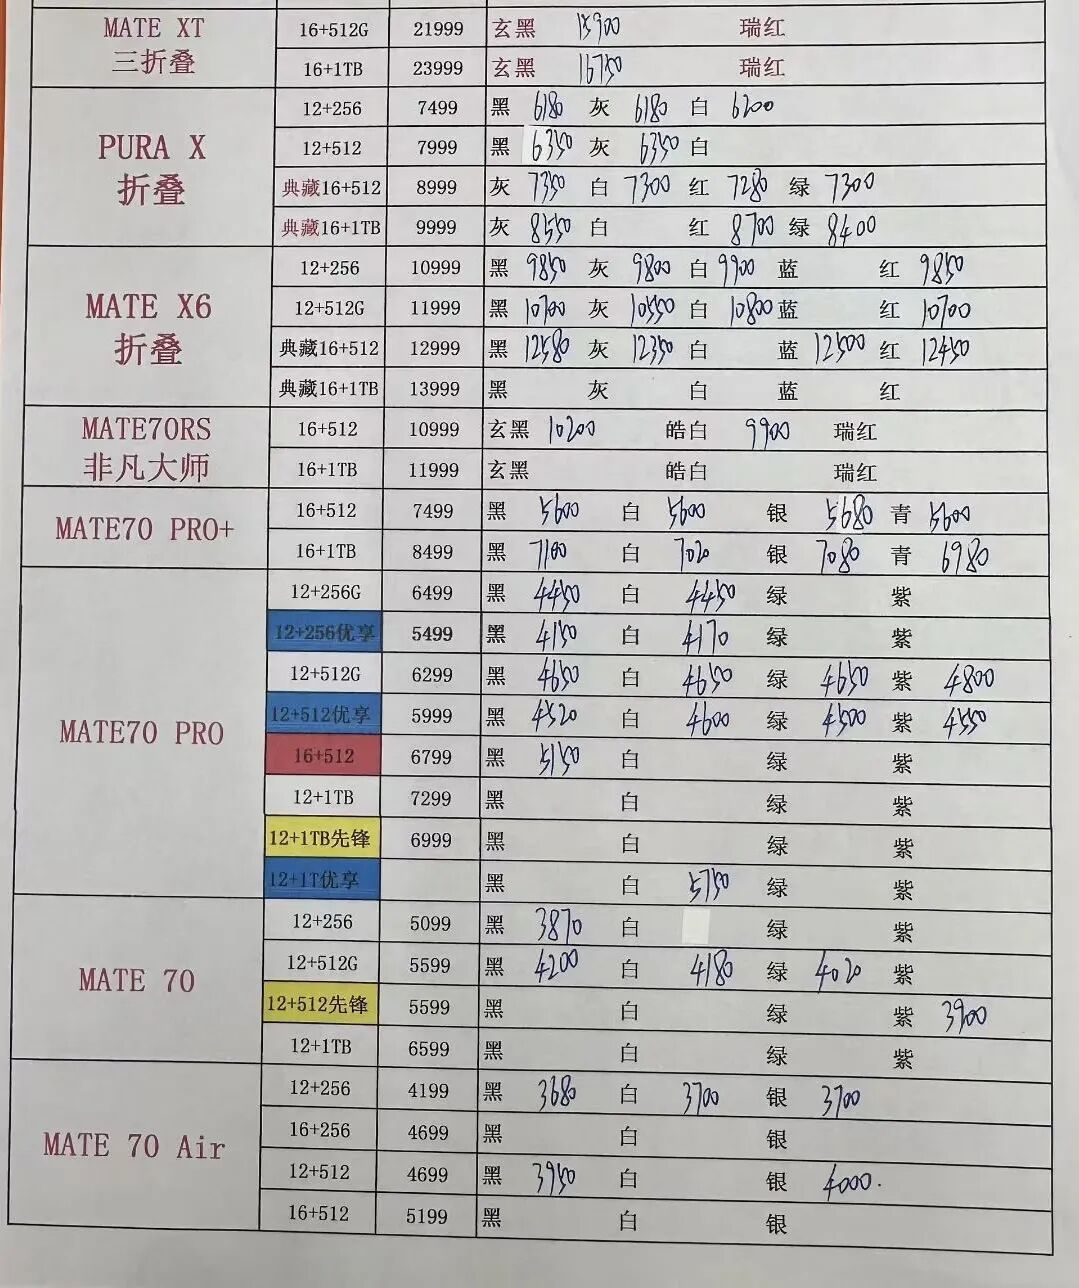 MATE XT
三折叠
16+512G 21999 玄黑 15900 瑞红
16+1TB 23999 玄黑 16750 瑞红
PURA X
折叠
12+256 7499 黑 6180 灰 6180 白 6200
12+512 7999 黑 6350 灰 6350 白
典藏16+512 8999 灰 7350 白 7300 红 7280 绿 7300
典藏16+1TB 9999 灰 8550 白 红 8700 绿 8400
MATE X6
折叠
12+256 10999 黑 9850 灰 9800 白 9900 蓝 红 9850
12+512G 11999 黑 10700 灰 10550 白 10800 蓝 红 10700
典藏16+512 12999 黑 12580 灰 12350 白 蓝 12500 红 12450
典藏16+1TB 13999 黑 灰 白 蓝 红
MATE70RS
非凡大师
16+512 10999 玄黑 10200 皓白 9900 瑞红
16+1TB 11999 玄黑 皓白 瑞红
MATE70 PRO+
16+512 7499 黑 5600 白 5600 银 5680 青 5600
16+1TB 8499 黑 7100 白 7020 银 7080 青 6980
MATE70 PRO
12+256G 6499 黑 4450 白 4450 绿 紫
12+256优享 5499 黑 4150 白 4170 绿 紫
12+512G 6299 黑 4650 白 4650 绿 4650 紫 4800
12+512优享 5999 黑 4520 白 4600 绿 4500 紫 4550
16+512 6799 黑 5150 白 绿 紫
12+1TB 7299 黑 白 绿 紫
12+1TB先锋 6999 黑 白 绿 紫
12+1T优享 黑 白 5750 绿 紫
MATE 70
12+256 5099 黑 3870 白 绿 紫
12+512G 5599 黑 4200 白 4180 绿 4020 紫
12+512先锋 5599 黑 白 绿 紫 3900
12+1TB 6599 黑 白 绿 紫
MATE 70 Air
12+256 4199 黑 3680 白 3700 银 3700
16+256 4699 黑 白 银
12+512 4699 黑 3950 白 银 4000.
16+512 5199 黑 白 银